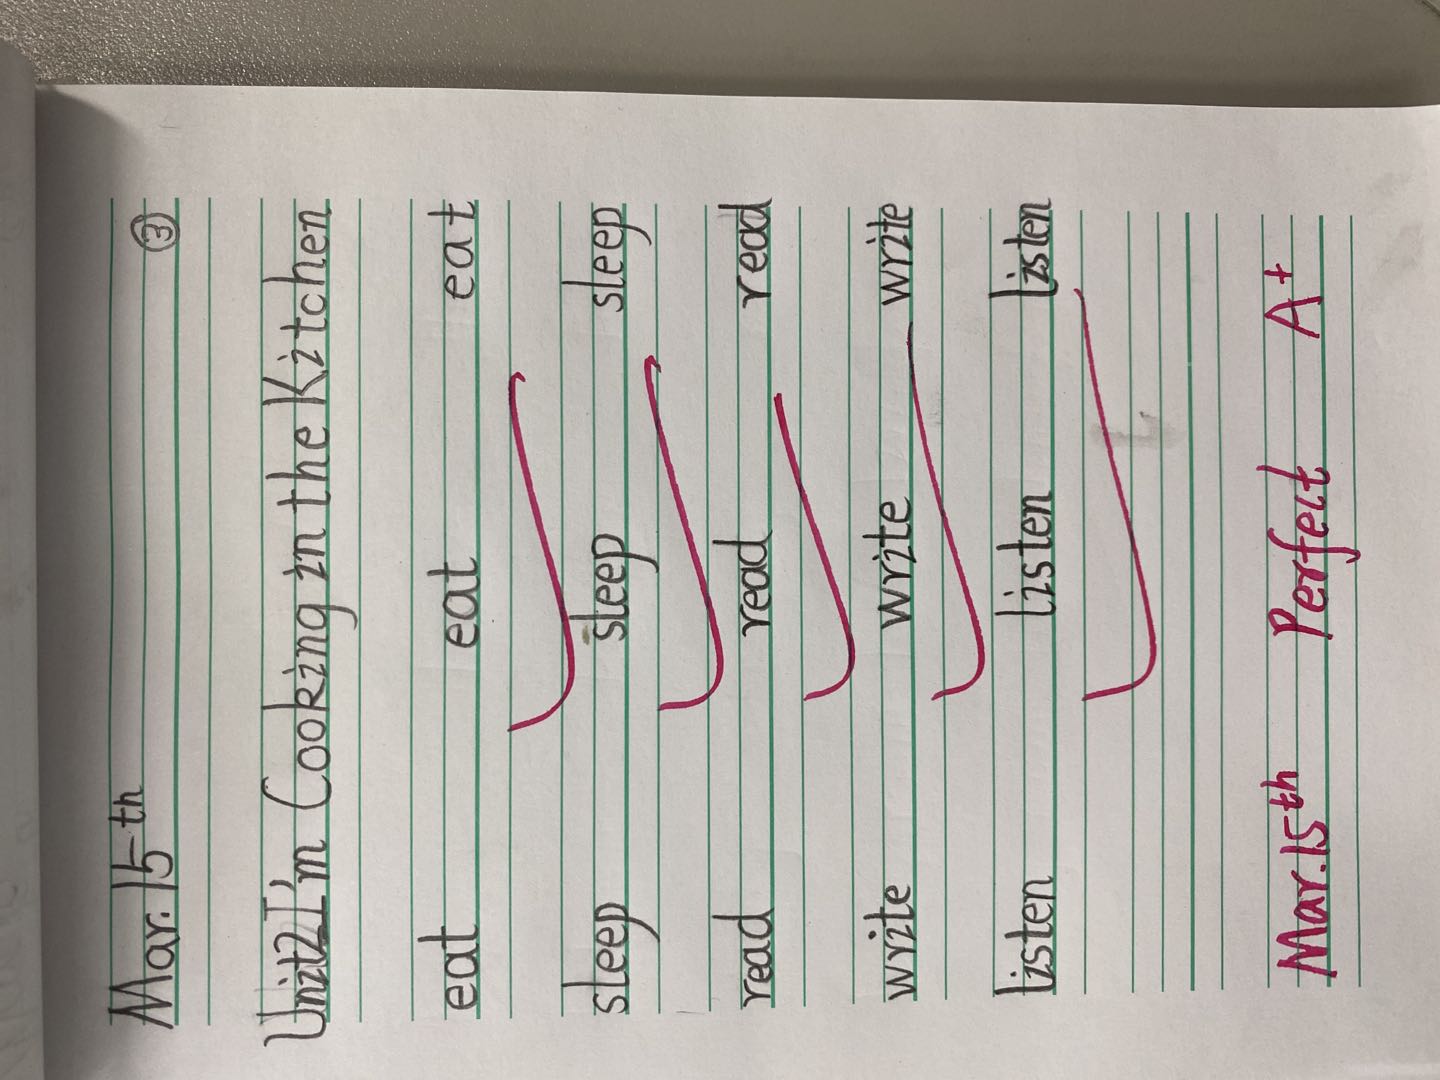 Mar. 15th ③
Unit2I'm Cooking in the Kitchen
eat eat eat
sleep sleep sleep
read read read
write write write
listen listen listen
Mar. 15th Perfect A+